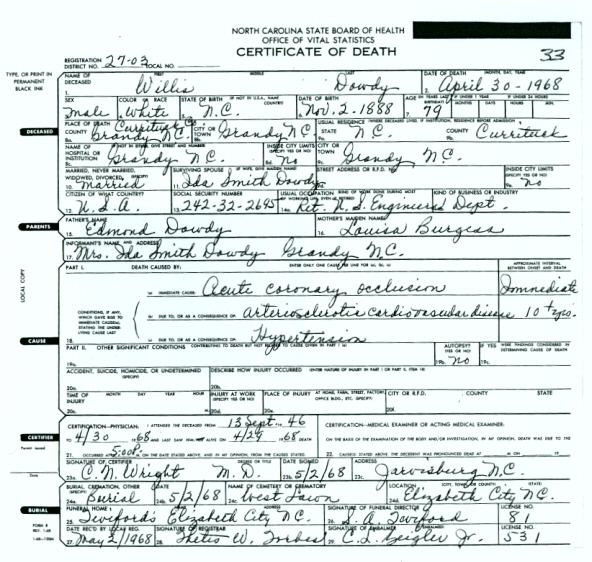 NORTH CAROLINA STATE BOARD OF HEALTH
OFFICE OF VITAL STATISTICS
CERTIFICATE OF DEATH
33
REGISTRATION DISTRICT NO. 27-03 LOCAL NO.
TYPE, OR PRINT IN PERMANENT BLACK INK
NAME OF DECEASED FIRST MIDDLE LAST DATE OF DEATH MONTH, DAY, YEAR
1. Willis Dowdy 2. April 30-1968
SEX COLOR OR RACE STATE OF BIRTH (IF NOT IN U.S.A., NAME COUNTRY) DATE OF BIRTH AGE IF UNDER 1 YEAR IF UNDER 24 HOURS
male White N.C. Nov. 2. 1888 79 MONTHS DAYS HOURS MIN.
DECEASED
PLACE OF DEATH COUNTY Currituck Co. Grandy N.C. CITY OR TOWN Grandy N.C. USUAL RESIDENCE STATE N.C. COUNTY Currituck
NAME OF HOSPITAL OR INSTITUTION Grandy N.C. INSIDE CITY LIMITS no CITY OR TOWN Grandy N.C.
MARRIED, NEVER MARRIED, WIDOWED, DIVORCED, (SPECIFY) SURVIVING SPOUSE STREET ADDRESS OR R.F.D. NO. INSIDE CITY LIMITS
10. Married 11. Ida Smith Dowdy no
CITIZEN OF WHAT COUNTRY? SOCIAL SECURITY NUMBER USUAL OCCUPATION KIND OF BUSINESS OR INDUSTRY
12. U.S.A. 13. 242-32-2695 14a. Ret. U.S. Engineers Dept
PARENTS
FATHER'S NAME MOTHER'S MAIDEN NAME
15. Edmond Dowdy 16. Louisa Burgess
INFORMANT'S NAME AND ADDRESS
17. Mrs. Ida Smith Dowdy Grandy N.C.
LOCAL COPY
PART I. DEATH CAUSED BY: ENTER ONLY ONE CAUSE PER LINE APPROXIMATE INTERVAL BETWEEN ONSET AND DEATH
IMMEDIATE CAUSE: Acute coronary occlusion Immediate
CONDITIONS, IF ANY, WHICH GAVE RISE TO IMMEDIATE CAUSE(A), STATING THE UNDERLYING CAUSE LAST
DUE TO, OR AS A CONSEQUENCE OF: Arteriosclerotic cardiovascular disease 10 + yrs.
DUE TO, OR AS A CONSEQUENCE OF: Hypertension
18.
CAUSE
PART II. OTHER SIGNIFICANT CONDITIONS CONTRIBUTING TO DEATH BUT NOT RELATED TO CAUSE GIVEN IN PART I AUTOPSY? (YES OR NO) IF YES WERE FINDINGS CONSIDERED IN DETERMINING CAUSE OF DEATH
19a. 19b. no 19c.
ACCIDENT, SUICIDE, HOMICIDE, OR UNDETERMINED (SPECIFY) DESCRIBE HOW INJURY OCCURRED (ENTER NATURE OF INJURY IN PART I OR PART II, ITEM 18)
20a. 20b.
TIME OF INJURY MONTH DAY YEAR HOUR INJURY AT WORK (SPECIFY YES OR NO) PLACE OF INJURY AT HOME, FARM, STREET, FACTORY, OFFICE BLDG., ETC. (SPECIFY) CITY OR R.F.D. COUNTY STATE
20c. 20d. 20e. 20f.
CERTIFIER
CERTIFICATION-PHYSICIAN: I ATTENDED THE DECEASED FROM 13 Sept. 46 CERTIFICATION-MEDICAL EXAMINER OR ACTING MEDICAL EXAMINER:
TO 4/30 1968 AND LAST SAW ALIVE ON 4/29 1968 DEATH ON THE BASIS OF THE EXAMINATION OF THE BODY AND/OR INVESTIGATION, IN MY OPINION, DEATH WAS DUE TO THE
21. OCCURRED AT 5:00P. ON THE DATE STATED ABOVE, AND IN MY OPINION, FROM THE CAUSES STATED 22.
SIGNATURE OF CERTIFIER DEGREE OR TITLE DATE SIGNED ADDRESS
23a. C. N. Wright M.D. 23b. 5/2/68 23c. Jarvisburg N.C.
BURIAL, CREMATION, OTHER (SPECIFY) DATE NAME OF CEMETERY OR CREMATORY LOCATION (CITY, TOWN, OR COUNTY) (STATE)
24a. Burial 24b. 5/2/68 24c. West Lawn 24d. Elizabeth City N.C.
BURIAL
FUNERAL HOME ADDRESS SIGNATURE OF FUNERAL DIRECTOR LICENSE NO.
25. Twiford's Elizabeth City N.C. 26. Twiford 81
DATE REC'D BY LOCAL REG. SIGNATURE OF REGISTRAR SIGNATURE OF EMBALMER LICENSE NO.
27. May 2/1968 28. Thetis W. Forbes 29. C. L. Beigler Jr. 531
FORM 8
REV. 1-68